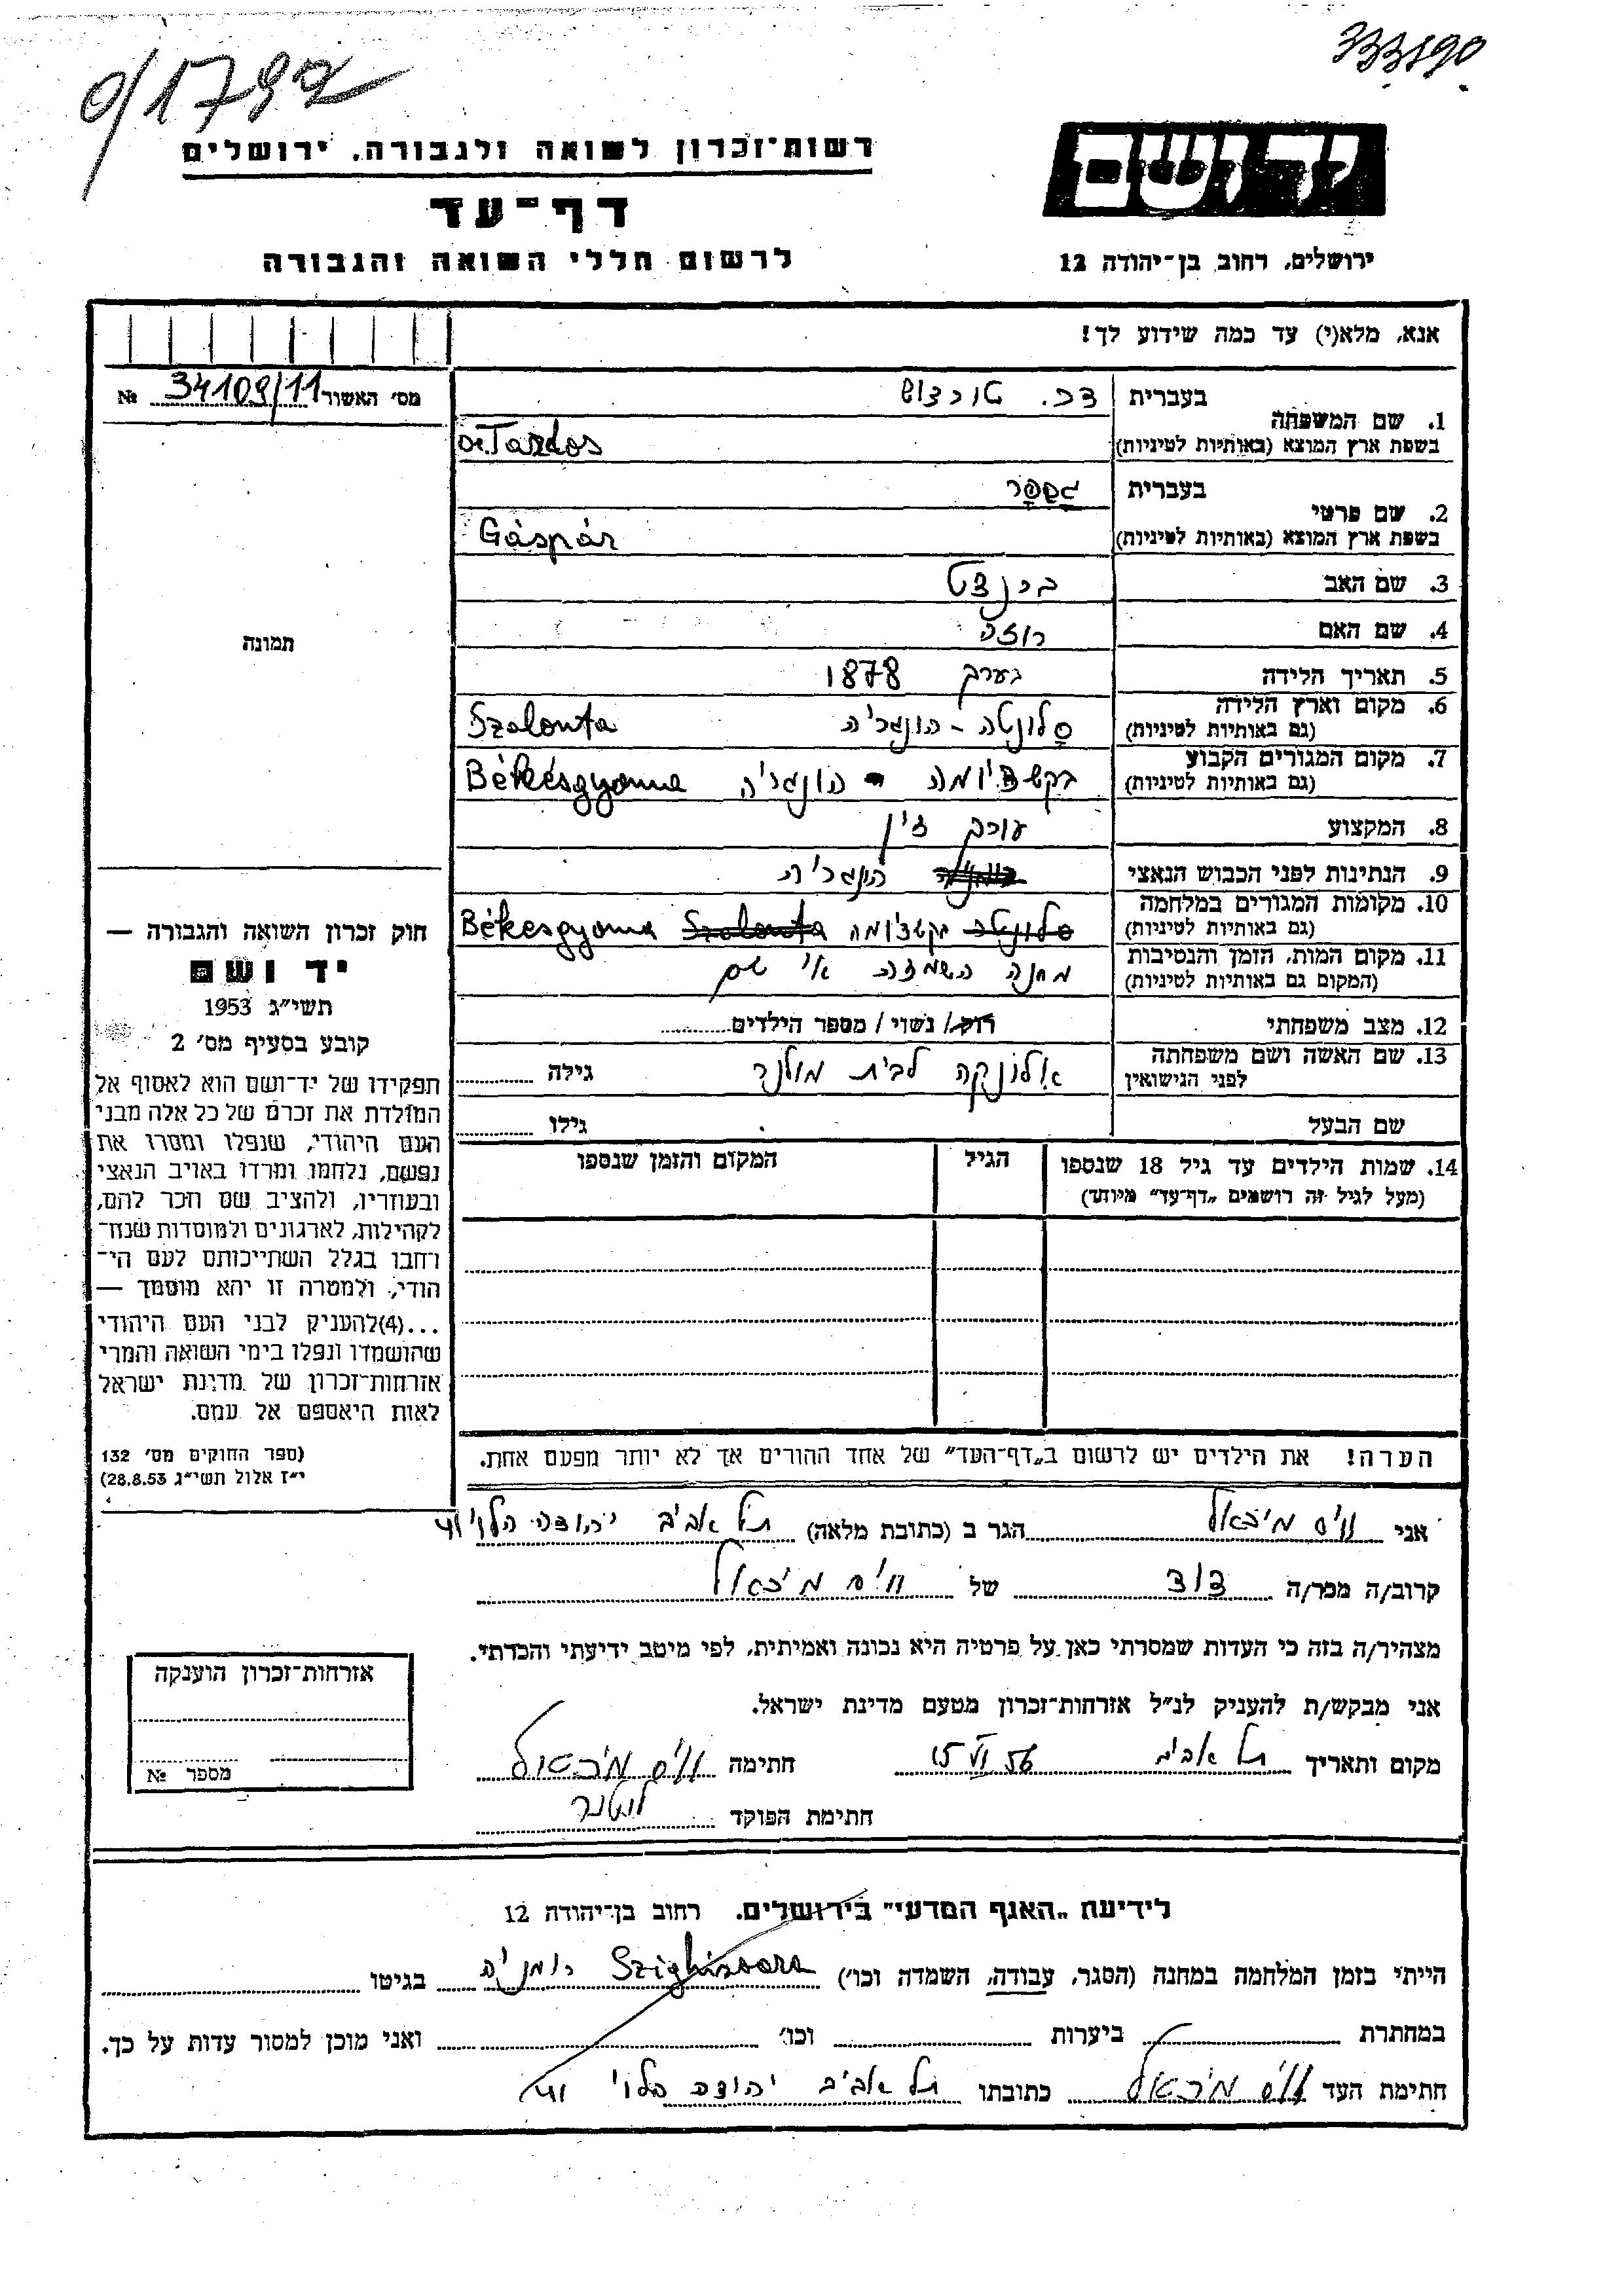 333190
0/1792
יד ושם
רשות־זכרון לשואה ולגבורה, ירושלים
דף־עד
ירושלים, רחוב בן־יהודה 12
לרשום חללי השואה והגבורה
אנא, מלא(י) עד כמה שידוע לך!
מס׳ האשור 34109/11 №
תמונה
1. שם המשפחה
בעברית דר. טרדוש
בשפת ארץ המוצא (באותיות לטיניות) Dr. Tardos
2. שם פרטי
בעברית גַשפַר
בשפת ארץ המוצא (באותיות לטיניות) Gáspár
3. שם האב ברנדט
4. שם האם רוזה
5. תאריך הלידה בערך 1878
6. מקום וארץ הלידה סלונטה - הונגריה Szalonta
(גם באותיות לטיניות)
7. מקום המגורים הקבוע בקשדיומה - הונגריה Békésgyoma
(גם באותיות לטיניות)
8. המקצוע עורך דין
9. הנתינות לפני הכבוש הנאצי הונגרית
10. מקומות המגורים במלחמה סלונטה בקשדיומה Szalonta Békesgyoma
(גם באותיות לטיניות)
11. מקום המות, הזמן והנסיבות מחנה השמדה אי שם
(המקום גם באותיות לטיניות)
12. מצב משפחתי רוק / נשוי / מספר הילדים
13. שם האשה ושם משפחתה אילונקה לבית מולנר גילה
לפני הנישואין
שם הבעל גילו
14. שמות הילדים עד גיל 18 שנספו הגיל המקום והזמן שנספו
(מעל לגיל זה רושמים „דף־עד” מיוחד)
הערה! את הילדים יש לרשום ב„דף־העד” של אחד ההורים אך לא יותר מפעם אחת.
חוק זכרון השואה והגבורה —
יד ושם
תשי״ג 1953
קובע בסעיף מס׳ 2
תפקידו של יד־ושם הוא לאסוף אל
המולדת את זכרם של כל אלה מבני
העם היהודי, שנפלו ומסרו את
נפשם, נלחמו ומרדו באויב הנאצי
ובעוזריו, ולהציב שם וזכר להם,
לקהילות, לארגונים ולמוסדות שנח־
רחבו בגלל השתייכותם לעם הי־
הודי, ולמטרה זו יהא מוסמך —
...(4)להעניק לבני העם היהודי
שהושמדו ונפלו בימי השואה והמרי
אזרחות־זכרון של מדינת ישראל
לאות היאספם אל עמם.
(ספר החוקים מס׳ 132
י״ז אלול תשי״ג 28.8.53)
אני וייס מיכאל הגר ב (כתובת מלאה) תל אביב יהודה הלוי
קרוב/ה מכר/ה דוד של וייס מיכאל
מצהיר/ה בזה כי העדות שמסרתי כאן על פרטיה היא נכונה ואמיתית, לפי מיטב ידיעתי והכרתי.
אני מבקש/ת להעניק לנ״ל אזרחות־זכרון מטעם מדינת ישראל.
מקום ותאריך תל אביב 15 VI 56 חתימה וייס מיכאל
חתימת הפוקד
אזרחות־זכרון הוענקה
מספר №
לידיעת „האגף המדעי” בירושלים, רחוב בן־יהודה 12
הייתי בזמן המלחמה במחנה (הסגר, עבודה, השמדה וכו׳) רומניה בגיטו
במחתרת ביערות וכו׳ ואני מוכן למסור עדות על כך.
חתימת העד וייס מיכאל כתובתו תל אביב יהודה הלוי